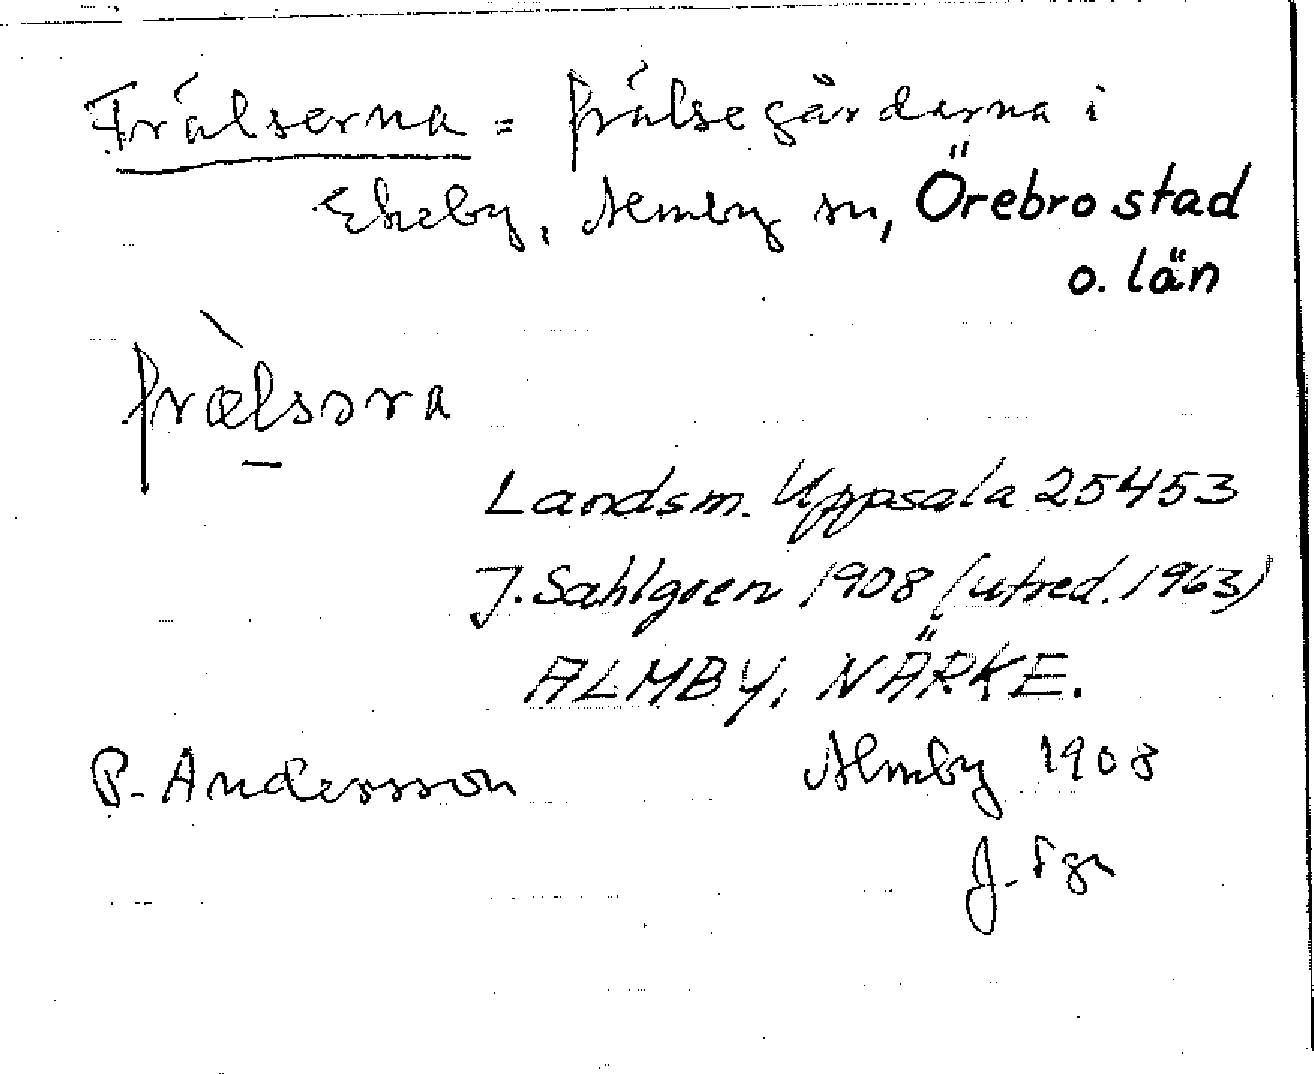 Frälserna = frälsegårdarna i
Ekeby, Almby sn, Örebro stad
o. län
fræ̀lsəra
Landsm. Uppsala 25453
J. Sahlgren 1908 (utred. 1963)
ALMBY, NÄRKE.
P. Andersson
Almby 1908
J. Sgn